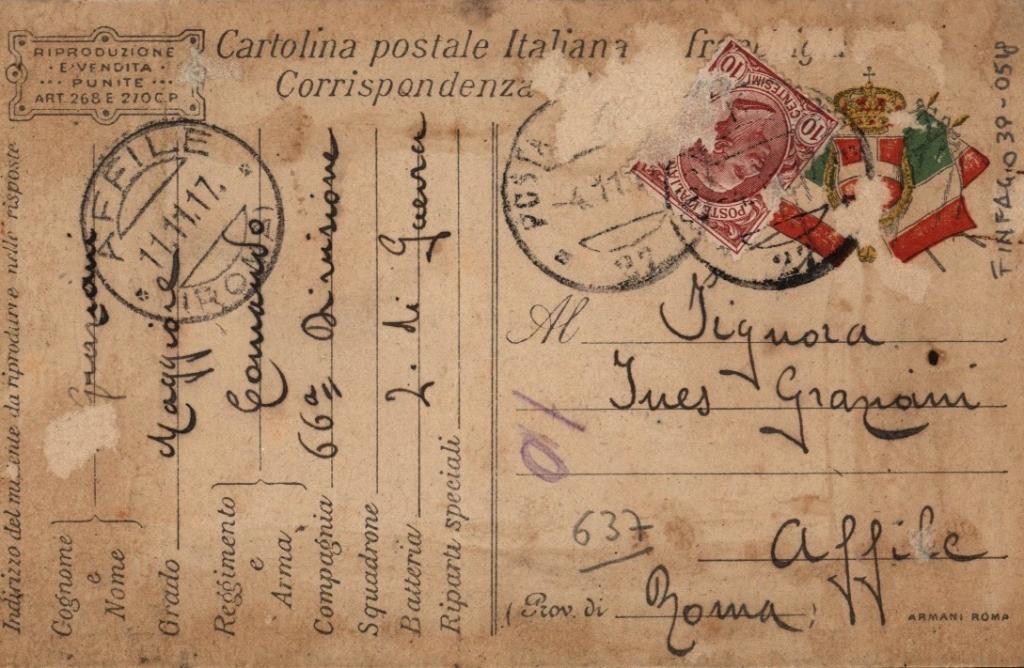 RIPRODUZIONE
E VENDITA
PUNITE
ART. 268 E 270 C.P.
Cartolina postale Italiana
Corrispondenza
10 CENTESIMI 10
POSTE ITALIANE
FINFAGIO 39-058
AFFILE
11.11.17.
(ROMA)
POSTA
4.11.1
Indirizzo del mittente da riprodurre nelle risposte
Cognome e Nome Graziani
Grado Maggiore
Reggimento e Arma Comando
Compagnia 66ª Divisione
Squadrone
Batteria Z. di Guerra
Riparti speciali
Al Signora
Ines Graziani
10
637
Affile
(Prov. di Roma)
ARMANI ROMA